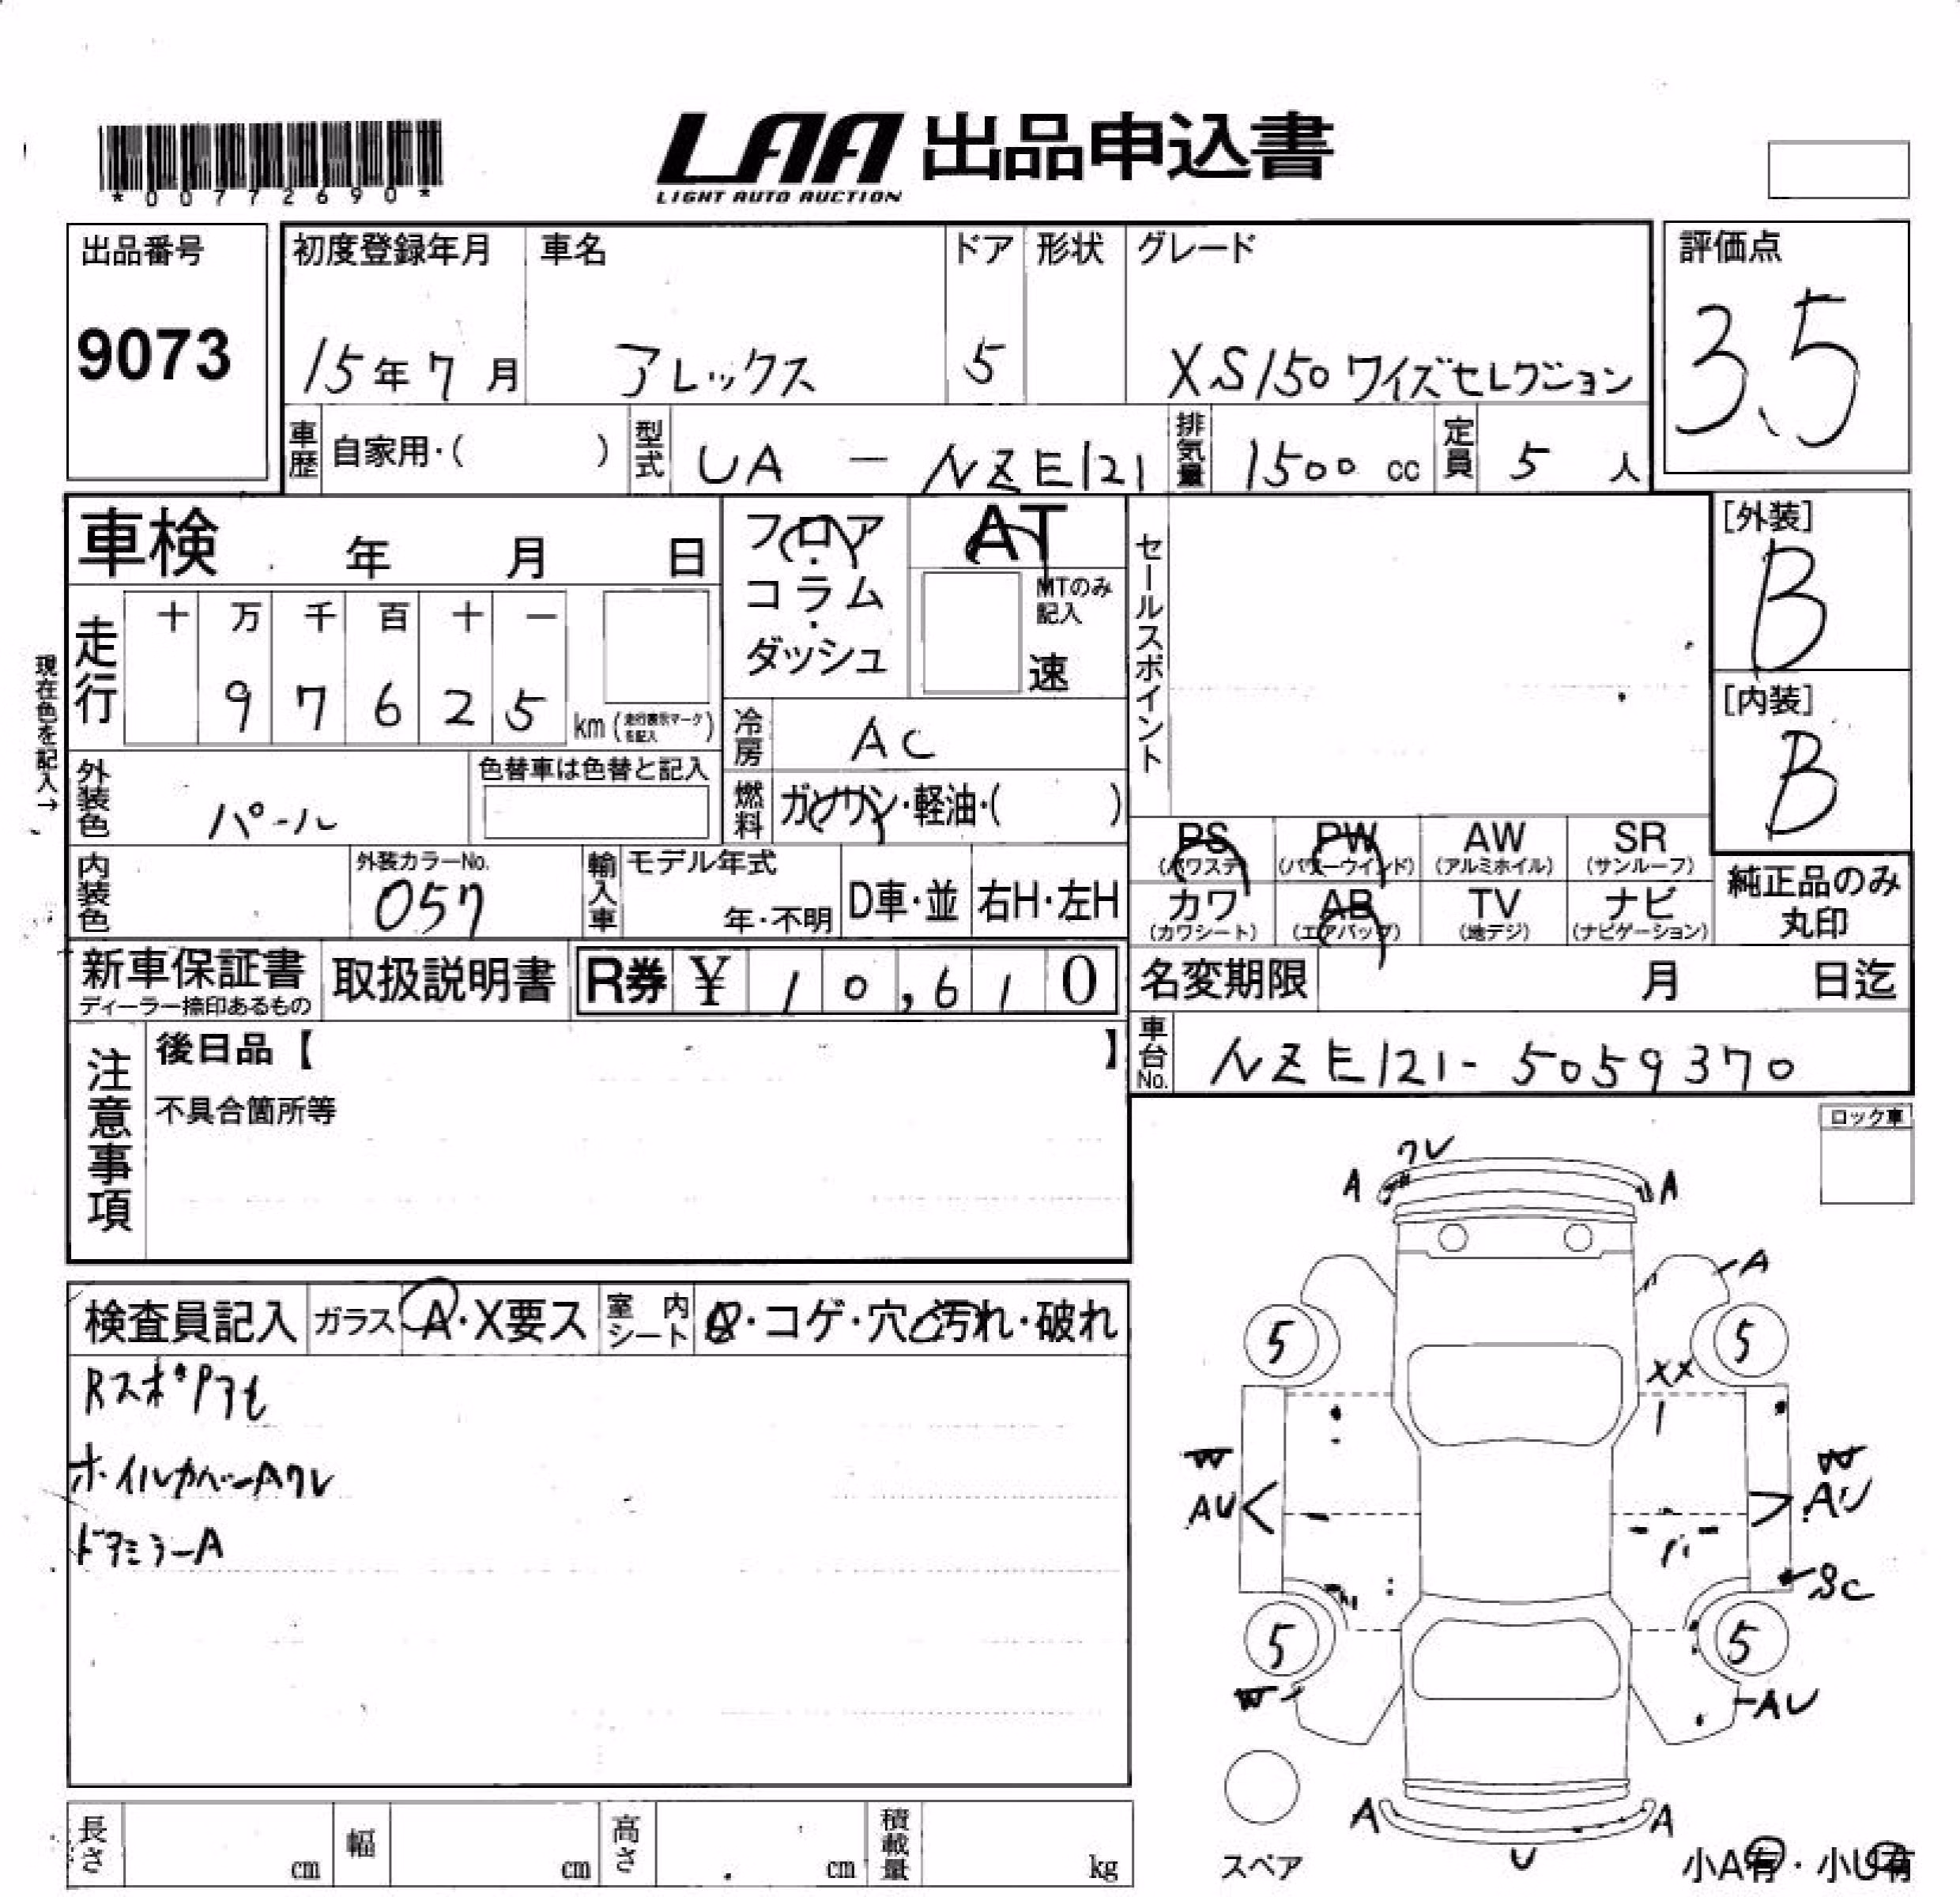 *00772690*
LAA 出品申込書
LIGHT AUTO AUCTION
出品番号
9073
初度登録年月 車名 ドア 形状 グレード
15年7月 アレックス 5 XS150ワイズセレクション
評価点
3.5
車歴 自家用・( ) 型式 UA - NZE121 排気量 1500 cc 定員 5 人
車検 年 月 日
フロア・コラム・ダッシュ
AT
MTのみ記入
速
セールスポイント
[外装]
B
[内装]
B
走行 十 万 千 百 十 一
9 7 6 2 5 km (走行表示マークを記入)
現在色を記入→
冷房 AC
外装色 パール
色替車は色替と記入
燃料 ガソリン・軽油・( )
内装色
外装カラーNo.
057
輸入車 モデル年式
年・不明 D車・並 右H・左H
PS (パワステ) PW (パワーウインド) AW (アルミホイル) SR (サンルーフ)
カワ (カワシート) AB (エアバッグ) TV (地デジ) ナビ (ナビゲーション)
純正品のみ丸印
新車保証書
ディーラー捺印あるもの
取扱説明書
R券 ¥ 10,610
名変期限 月 日迄
車台No. NZE121-5059370
注意事項
後日品【 】
不具合箇所等
ロック車
検査員記入 ガラス A・X要ス 室内シート ・コゲ・穴・汚れ・破れ
Rスポ
ホイルカバーAワレ
ドアミラーA
ワレ
A A
A
5 5
XX
W W
AU AU
SC
5 5
W AU
A A
U
スペア
小A有・小U有
長さ cm 幅 cm 高さ cm 積載量 kg